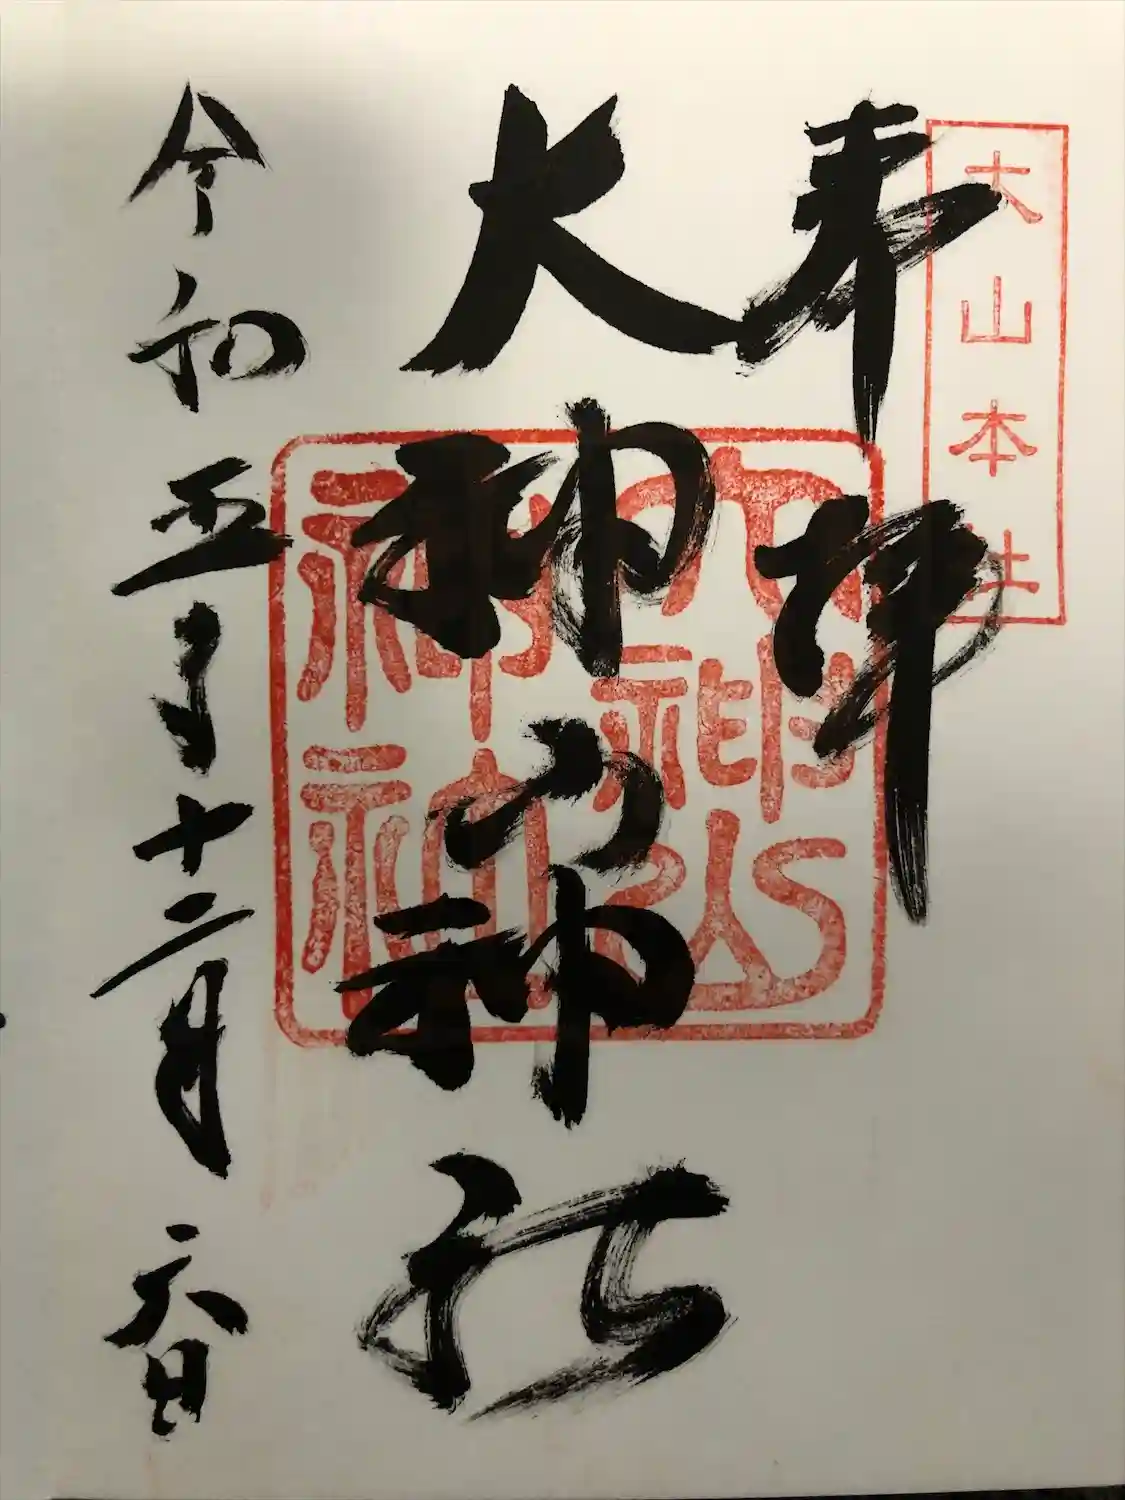 大山本社
奉拝
大神山神社
令和五年十二月六日